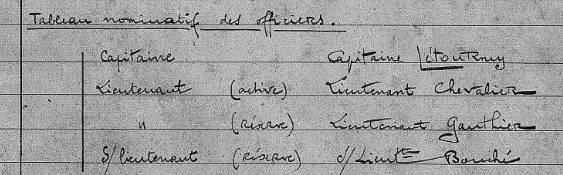 Tableau nominatif des officiers.
Capitaine Capitaine Létourney
Lieutenant (active) Lieutenant Chevalier
" (réserve) Lieutenant Gauthier
S/lieutenant (réserve) s/Lieutt Bouché